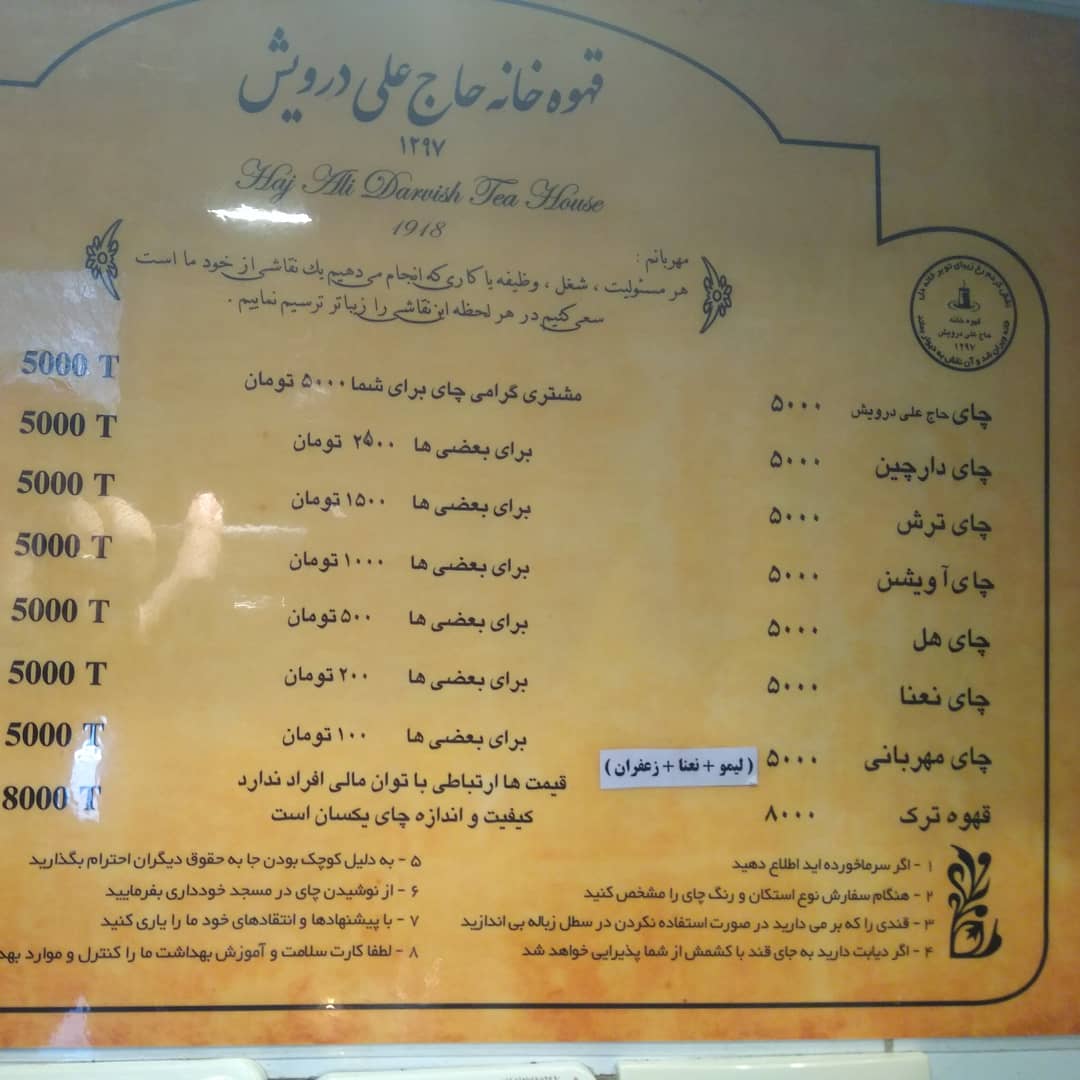 قهوه خانه حاج علی درویش
۱۲۹۷
Haj Ali Darvish Tea House
1918
مهربانم :
هر مسئولیت ، شغل ، وظیفه یا کاری که انجام می دهیم یك نقاشی از خود ما است
سعی کنیم در هر لحظه این نقاشی را زیباتر ترسیم نماییم .
قهوه خانه
حاج علی درویش
۱۲۹۷
چای حاج علی درویش ۵۰۰۰
چای دارچین ۵۰۰۰
چای ترش ۵۰۰۰
چای آویشن ۵۰۰۰
چای هل ۵۰۰۰
چای نعنا ۵۰۰۰
چای مهربانی ۵۰۰۰ ( لیمو + نعنا + زعفران )
قهوه ترک ۸۰۰۰
مشتری گرامی چای برای شما ۵۰۰۰ تومان
برای بعضی ها ۲۵۰۰ تومان
برای بعضی ها ۱۵۰۰ تومان
برای بعضی ها ۱۰۰۰ تومان
برای بعضی ها ۵۰۰ تومان
برای بعضی ها ۲۰۰ تومان
برای بعضی ها ۱۰۰ تومان
قیمت ها ارتباطی با توان مالی افراد ندارد
کیفیت و اندازه چای یکسان است
5000 T
5000 T
5000 T
5000 T
5000 T
5000 T
5000 T
8000 T
۱ - اگر سرماخورده اید اطلاع دهید
۲ - هنگام سفارش نوع استکان و رنگ چای را مشخص کنید
۳ - قندی را که بر می دارید در صورت استفاده نکردن در سطل زباله بی اندازید
۴ - اگر دیابت دارید به جای قند با کشمش از شما پذیرایی خواهد شد
۵ - به دلیل کوچک بودن جا به حقوق دیگران احترام بگذارید
۶ - از نوشیدن چای در مسجد خودداری بفرمایید
۷ - با پیشنهادها و انتقادهای خود ما را یاری کنید
۸ - لطفا کارت سلامت و آموزش بهداشت ما را کنترل و موارد